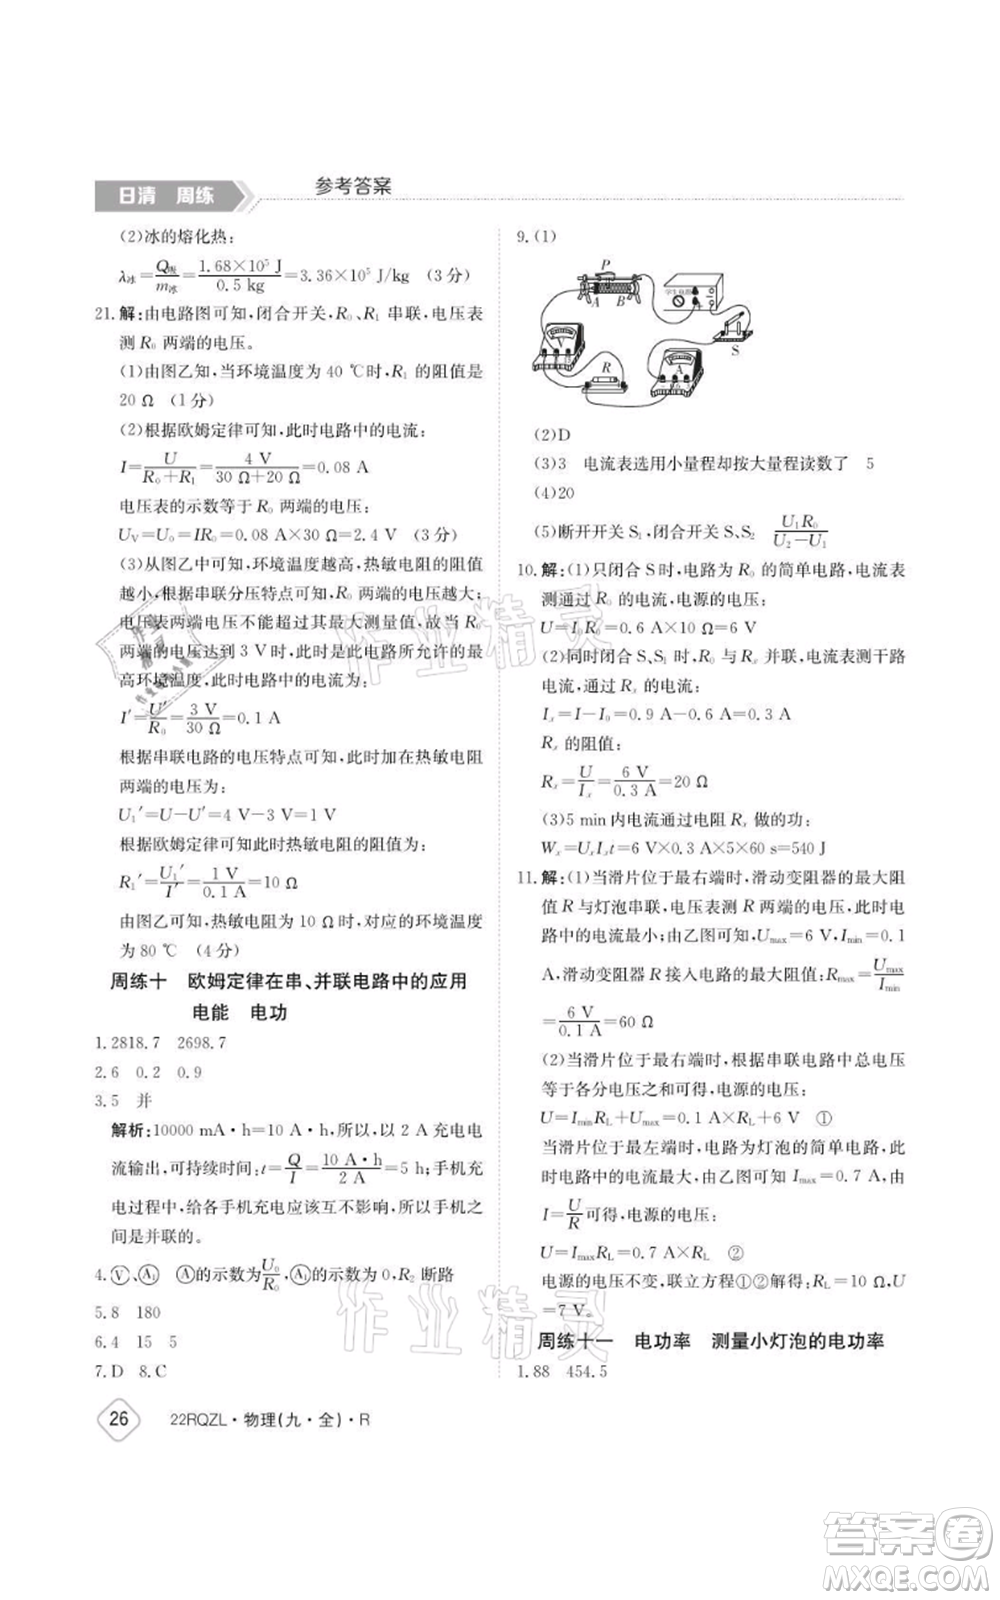 日清 周练
参考答案
(2)冰的熔化热:
λ冰=Q吸/m冰=1.68×10⁵ J/0.5 kg=3.36×10⁵ J/kg (3分)
21.解:由电路图可知,闭合开关,R₀、R₁ 串联,电压表
测 R₀ 两端的电压。
(1)由图乙知,当环境温度为 40 ℃时,R₁ 的阻值是
20 Ω (1分)
(2)根据欧姆定律可知,此时电路中的电流:
I=U/(R₀+R₁)=4 V/(30 Ω+20 Ω)=0.08 A
电压表的示数等于 R₀ 两端的电压:
U_V=U₀=IR₀=0.08 A×30 Ω=2.4 V (3分)
(3)从图乙中可知,环境温度越高,热敏电阻的阻值
越小,根据串联分压特点可知,热敏电阻阻值越小,
电压表两端电压不能超过最大测量值,所以,当 R₀
两端的电压达到 3 V 时,环境温度为电路所允许的最
高环境温度,此时电路中的电流:
I′=U′/R₀=3 V/30 Ω=0.1 A
根据串联电路的电压特点可知,此时加在热敏电阻
两端的电压为:
U₁′=U−U′=4 V−3 V=1 V
根据欧姆定律可知此时热敏电阻的阻值为:
R₁′=U₁′/I′=1 V/0.1 A=10 Ω
由图乙可知,热敏电阻为 10 Ω 时,对应的环境温度
为 80 ℃ (4分)
周练十 欧姆定律在串、并联电路中的应用
电能 电功
1.2818.7 2698.7
2.6 0.2 0.9
3.5 并
解析:10000 mA·h=10 A·h,所以,以 2 A 充电电
流输出,可持续时间:t=Q/I=10 A·h/2 A=5 h;手机充
电过程中,给各手机充电应该互不影响,所以手机之
间是并联的。
4.Ⓥ、A₁ A₁的示数为U₀/R₀;A₁的示数为0,R₂ 断路
5.8 180
6.4 15 5
7.D 8.C
26 22RQZL·物理(九·全)·R
9.(1)
P
A B
学生电源
S
V
R
A
(2)D
(3)3 电流表选用小量程却按大量程读数了 5
(4)20
(5)断开开关 S₁,闭合开关 S、S₂ U₁R₀/(U₂−U₁)
10.解:(1)只闭合 S 时,电路为 R₀ 的简单电路,电流表
测通过 R₀ 的电流,电源的电压为:
U=I₀R₀=0.6 A×10 Ω=6 V
(2)同时闭合 S、S₁ 时,R₀ 与 Rₓ 并联,电流表测干路
电流,通过 Rₓ 的电流:
Iₓ=I−I₀=0.9 A−0.6 A=0.3 A
Rₓ 的阻值:
Rₓ=U/Iₓ=6 V/0.3 A=20 Ω
(3)5 min 内电流通过电阻 Rₓ 做的功:
Wₓ=UₓIₓt=6 V×0.3 A×5×60 s=540 J
11.解:(1)当滑片位于最右端时,滑动变阻器的最大阻
值 R 与灯泡串联,电压表测 R 两端的电压,此时电
路中的电流最小,由乙图可知:Umax=6 V,Imin=0.1
A,滑动变阻器 R 接入电路的最大阻值:R=Umax/Imin
=6 V/0.1 A=60 Ω
(2)当滑片位于最右端时,根据串联电路中总电压
等于各分电压之和可得,电源的电压:
U=IminRL+Umax=0.1 A×RL+6 V ①
当滑片位于最左端时,电路为灯泡的简单电路,此时
电路中的电流最大,由乙图可知:Imax=0.7 A,根据
I=U/R可得,电源的电压:
U=ImaxRL=0.7 A×RL ②
电源的电压不变,联立方程①②解得:RL=10 Ω,U
=7 V。
周练十一 电功率 测量小灯泡的电功率
1.88 454.5
作业精灵
作业精灵
答案卷
MXQE.COM